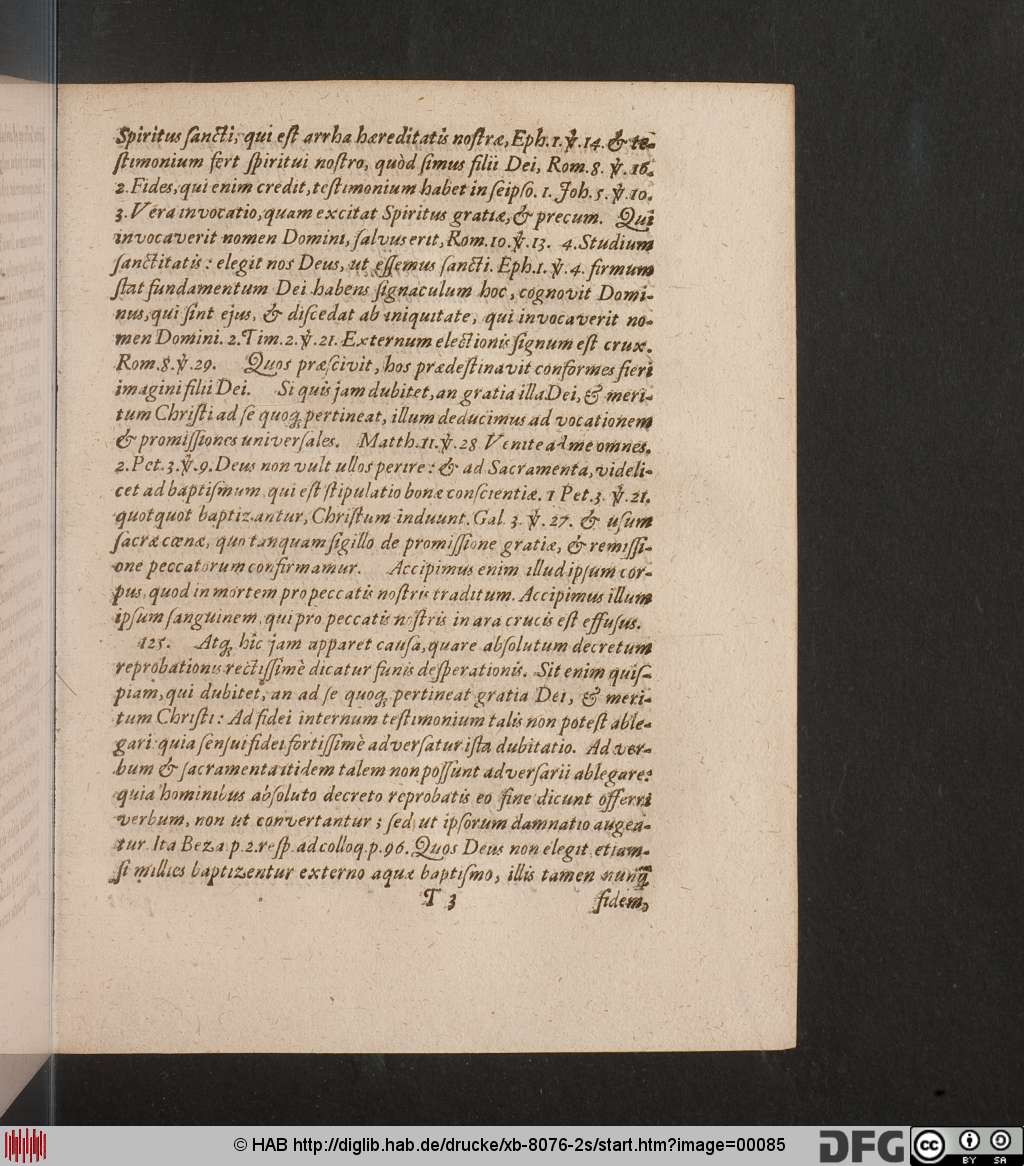 Spiritus ſancti, qui eſt arrha hæreditatis noſtræ, Eph. 1. ℣. 14. & te-
ſtimonium fert ſpiritui noſtro, quòd ſimus filii Dei, Rom. 8. ℣. 16.
2. Fides, qui enim credit, teſtimonium habet in ſeipſo. 1. Joh. 5. ℣. 10.
3. Vera invocatio, quam excitat Spiritus gratiæ, & precum. Qui
invocaverit nomen Domini, ſalvus erit, Rom. 10. ℣. 13. 4. Studium
ſanctitatis: elegit nos Deus, ut eſſemus ſancti. Eph. 1. ℣. 4. firmum
ſtat fundamentum Dei habens ſignaculum hoc, cognovit Domi-
nus, qui ſint ejus, & diſcedat ab iniquitate, qui invocaverit no-
men Domini. 2. Tim. 2. ℣. 21. Externum electionis ſignum eſt crux.
Rom. 8. ℣. 29. Quos præſcivit, hos prædeſtinavit conformes fieri
imagini filii Dei. Si quis jam dubitet, an gratia illa Dei, & meri-
tum Chriſti ad ſe quoq; pertineat, illum deducimus ad vocationem
& promiſſiones univerſales. Matth. 11. ℣. 28 Venite ad me omnes.
2. Pet. 3. ℣. 9. Deus non vult ullos perire: & ad Sacramenta, videli-
cet ad baptiſmum, qui eſt ſtipulatio bonæ conſcientiæ. 1 Pet. 3. ℣. 21.
quotquot baptizantur, Chriſtum induunt. Gal. 3. ℣. 27. & uſum
ſacræ cœnæ, quo tanquam ſigillo de promiſſione gratiæ, & remiſſi-
one peccatorum confirmamur. Accipimus enim illud ipſum cor-
pus, quod in mortem pro peccatis noſtris traditum. Accipimus illum
ipſum ſanguinem, qui pro peccatis noſtris in ara crucis eſt effuſus.
125. Atq; hîc jam apparet cauſa, quare abſolutum decretum
reprobationis rectiſſimè dicatur funis deſperationis. Sit enim quiſ-
piam, qui dubitet, an ad ſe quoq; pertineat gratia Dei, & meri-
tum Chriſti: Ad fidei internum teſtimonium talis non poteſt able-
gari: quia ſenſui fidei fortiſſimè adverſatur iſta dubitatio. Ad ver-
bum & ſacramenta itidem talem non poſſunt adverſarii ablegare:
quia hominibus abſoluto decreto reprobatis eo fine dicunt offerri
verbum, non ut convertantur; ſed ut ipſorum damnatio augea-
tur. Ita Beza p. 2. reſp. ad colloq. p. 96. Quos Deus non elegit, etiam-
ſi millies baptizentur externo aquæ baptiſmo, illis tamen nunq̃
T 3 fidem,
© HAB http://diglib.hab.de/drucke/xb-8076-2s/start.htm?image=00085
DFG
cc BY SA